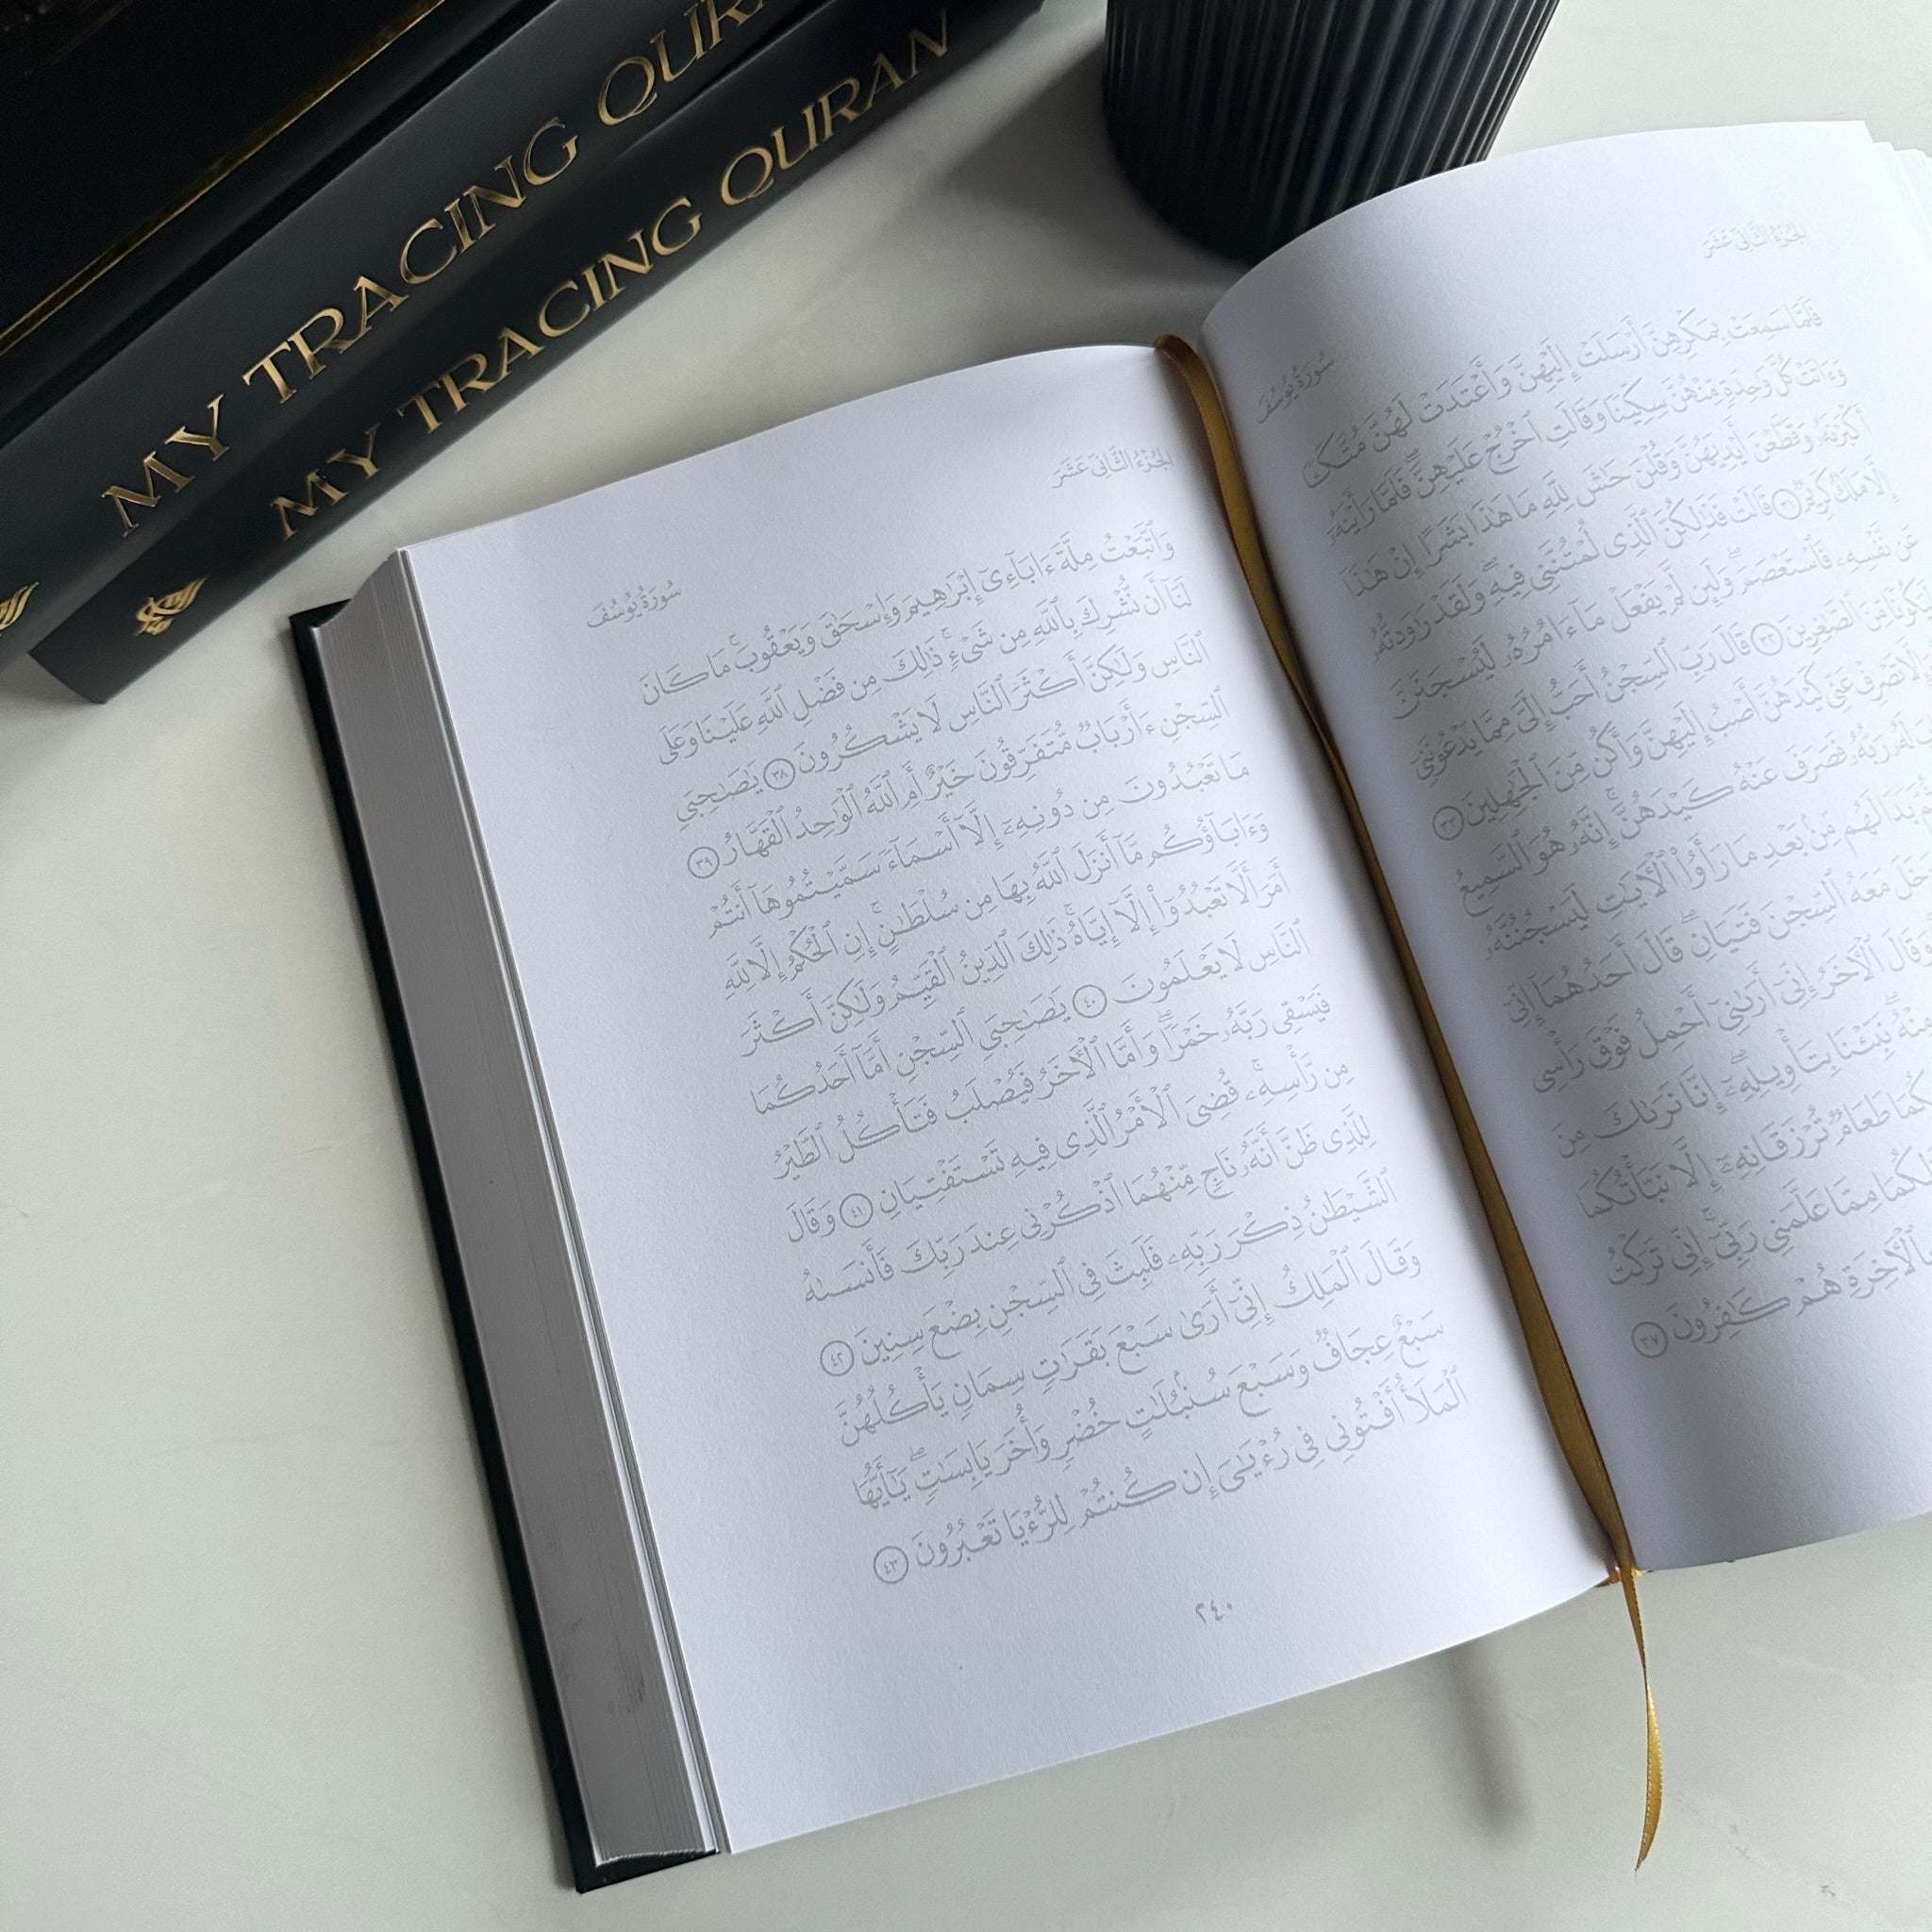 MY TRACING QUR
MY TRACING QURAN
الجزء الثاني عشر
سُورَةُ يُوسُفَ
فَلَمَّا سَمِعَتْ بِمَكْرِهِنَّ أَرْسَلَتْ إِلَيْهِنَّ وَأَعْتَدَتْ لَهُنَّ مُتَّكَـًٔا
وَءَاتَتْ كُلَّ وَٰحِدَةٍ مِّنْهُنَّ سِكِّينًا وَقَالَتِ ٱخْرُجْ عَلَيْهِنَّ ۖ فَلَمَّا رَأَيْنَهُۥٓ
أَكْبَرْنَهُۥ وَقَطَّعْنَ أَيْدِيَهُنَّ وَقُلْنَ حَٰشَ لِلَّهِ مَا هَٰذَا بَشَرًا إِنْ هَٰذَآ
إِلَّا مَلَكٌ كَرِيمٌ ٣١ قَالَتْ فَذَٰلِكُنَّ ٱلَّذِى لُمْتُنَّنِى فِيهِ ۖ وَلَقَدْ رَٰوَدتُّهُۥ
عَن نَّفْسِهِۦ فَٱسْتَعْصَمَ ۖ وَلَئِن لَّمْ يَفْعَلْ مَآ ءَامُرُهُۥ لَيُسْجَنَنَّ
مِّنَ ٱلصَّٰغِرِينَ ٣٢ قَالَ رَبِّ ٱلسِّجْنُ أَحَبُّ إِلَىَّ مِمَّا يَدْعُونَنِىٓ
تَصْرِفْ عَنِّى كَيْدَهُنَّ أَصْبُ إِلَيْهِنَّ وَأَكُن مِّنَ ٱلْجَٰهِلِينَ ٣٣
لَهُۥ رَبُّهُۥ فَصَرَفَ عَنْهُ كَيْدَهُنَّ ۚ إِنَّهُۥ هُوَ ٱلسَّمِيعُ
بَدَا لَهُم مِّنۢ بَعْدِ مَا رَأَوُا۟ ٱلْـَٔايَٰتِ لَيَسْجُنُنَّهُۥ
مَعَهُ ٱلسِّجْنَ فَتَيَانِ ۖ قَالَ أَحَدُهُمَآ إِنِّىٓ
وَقَالَ ٱلْـَٔاخَرُ إِنِّىٓ أَرَىٰنِىٓ أَحْمِلُ فَوْقَ رَأْسِى
مِنْهُ ۖ نَبِّئْنَا بِتَأْوِيلِهِۦٓ ۖ إِنَّا نَرَىٰكَ مِنَ
طَعَامٌ تُرْزَقَانِهِۦٓ إِلَّا نَبَّأْتُكُمَا
مِمَّا عَلَّمَنِى رَبِّىٓ ۚ إِنِّى تَرَكْتُ
بِٱلْـَٔاخِرَةِ هُمْ كَٰفِرُونَ ٣٧
الجزء الثاني عشر
سُورَةُ يُوسُفَ
وَٱتَّبَعْتُ مِلَّةَ ءَابَآءِىٓ إِبْرَٰهِيمَ وَإِسْحَٰقَ وَيَعْقُوبَ ۚ مَا كَانَ
لَنَآ أَن نُّشْرِكَ بِٱللَّهِ مِن شَىْءٍ ۚ ذَٰلِكَ مِن فَضْلِ ٱللَّهِ عَلَيْنَا وَعَلَى
ٱلنَّاسِ وَلَٰكِنَّ أَكْثَرَ ٱلنَّاسِ لَا يَشْكُرُونَ ٣٨ يَٰصَٰحِبَىِ
ٱلسِّجْنِ ءَأَرْبَابٌ مُّتَفَرِّقُونَ خَيْرٌ أَمِ ٱللَّهُ ٱلْوَٰحِدُ ٱلْقَهَّارُ ٣٩
مَا تَعْبُدُونَ مِن دُونِهِۦٓ إِلَّآ أَسْمَآءً سَمَّيْتُمُوهَآ أَنتُمْ
وَءَابَآؤُكُم مَّآ أَنزَلَ ٱللَّهُ بِهَا مِن سُلْطَٰنٍ ۚ إِنِ ٱلْحُكْمُ إِلَّا لِلَّهِ
أَمَرَ أَلَّا تَعْبُدُوٓا۟ إِلَّآ إِيَّاهُ ۚ ذَٰلِكَ ٱلدِّينُ ٱلْقَيِّمُ وَلَٰكِنَّ أَكْثَرَ
ٱلنَّاسِ لَا يَعْلَمُونَ ٤٠ يَٰصَٰحِبَىِ ٱلسِّجْنِ أَمَّآ أَحَدُكُمَا
فَيَسْقِى رَبَّهُۥ خَمْرًا ۖ وَأَمَّا ٱلْـَٔاخَرُ فَيُصْلَبُ فَتَأْكُلُ ٱلطَّيْرُ
مِن رَّأْسِهِۦ ۚ قُضِىَ ٱلْأَمْرُ ٱلَّذِى فِيهِ تَسْتَفْتِيَانِ ٤١ وَقَالَ
لِلَّذِى ظَنَّ أَنَّهُۥ نَاجٍ مِّنْهُمَا ٱذْكُرْنِى عِندَ رَبِّكَ فَأَنسَىٰهُ
ٱلشَّيْطَٰنُ ذِكْرَ رَبِّهِۦ فَلَبِثَ فِى ٱلسِّجْنِ بِضْعَ سِنِينَ ٤٢
وَقَالَ ٱلْمَلِكُ إِنِّىٓ أَرَىٰ سَبْعَ بَقَرَٰتٍ سِمَانٍ يَأْكُلُهُنَّ
سَبْعٌ عِجَافٌ وَسَبْعَ سُنۢبُلَٰتٍ خُضْرٍ وَأُخَرَ يَابِسَٰتٍ ۖ يَٰٓأَيُّهَا
ٱلْمَلَأُ أَفْتُونِى فِى رُءْيَٰىَ إِن كُنتُمْ لِلرُّءْيَا تَعْبُرُونَ ٤٣
٢٤٠